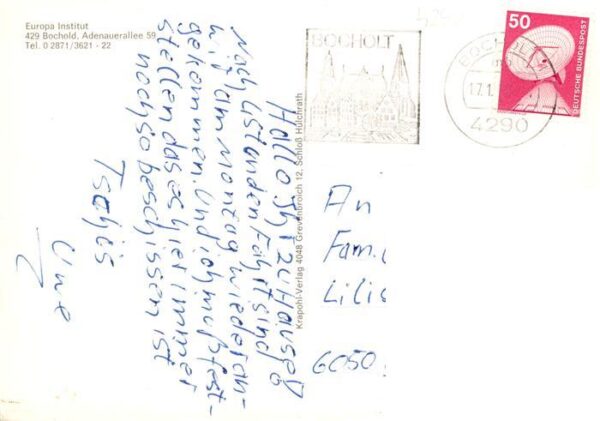 Europa Institut
429 Bochold, Adenauerallee 59
Tel. 0 2871/3621 - 22
Hallo Ihr zu Hause
Nach 4 Stunden Fahrt sind
wir am Montag wieder an-
gekommen. Und ich muß fest-
stellen das es hier immer
noch so beschissen ist
Tschüs
Uwe
Krapohl-Verlag 4048 Grevenbroich 12, Schloß Hülchrath
BOCHOLT
BOCHOLT
17.1.
4290
50
DEUTSCHE BUNDESPOST
An
Fam.
Lilis
6050